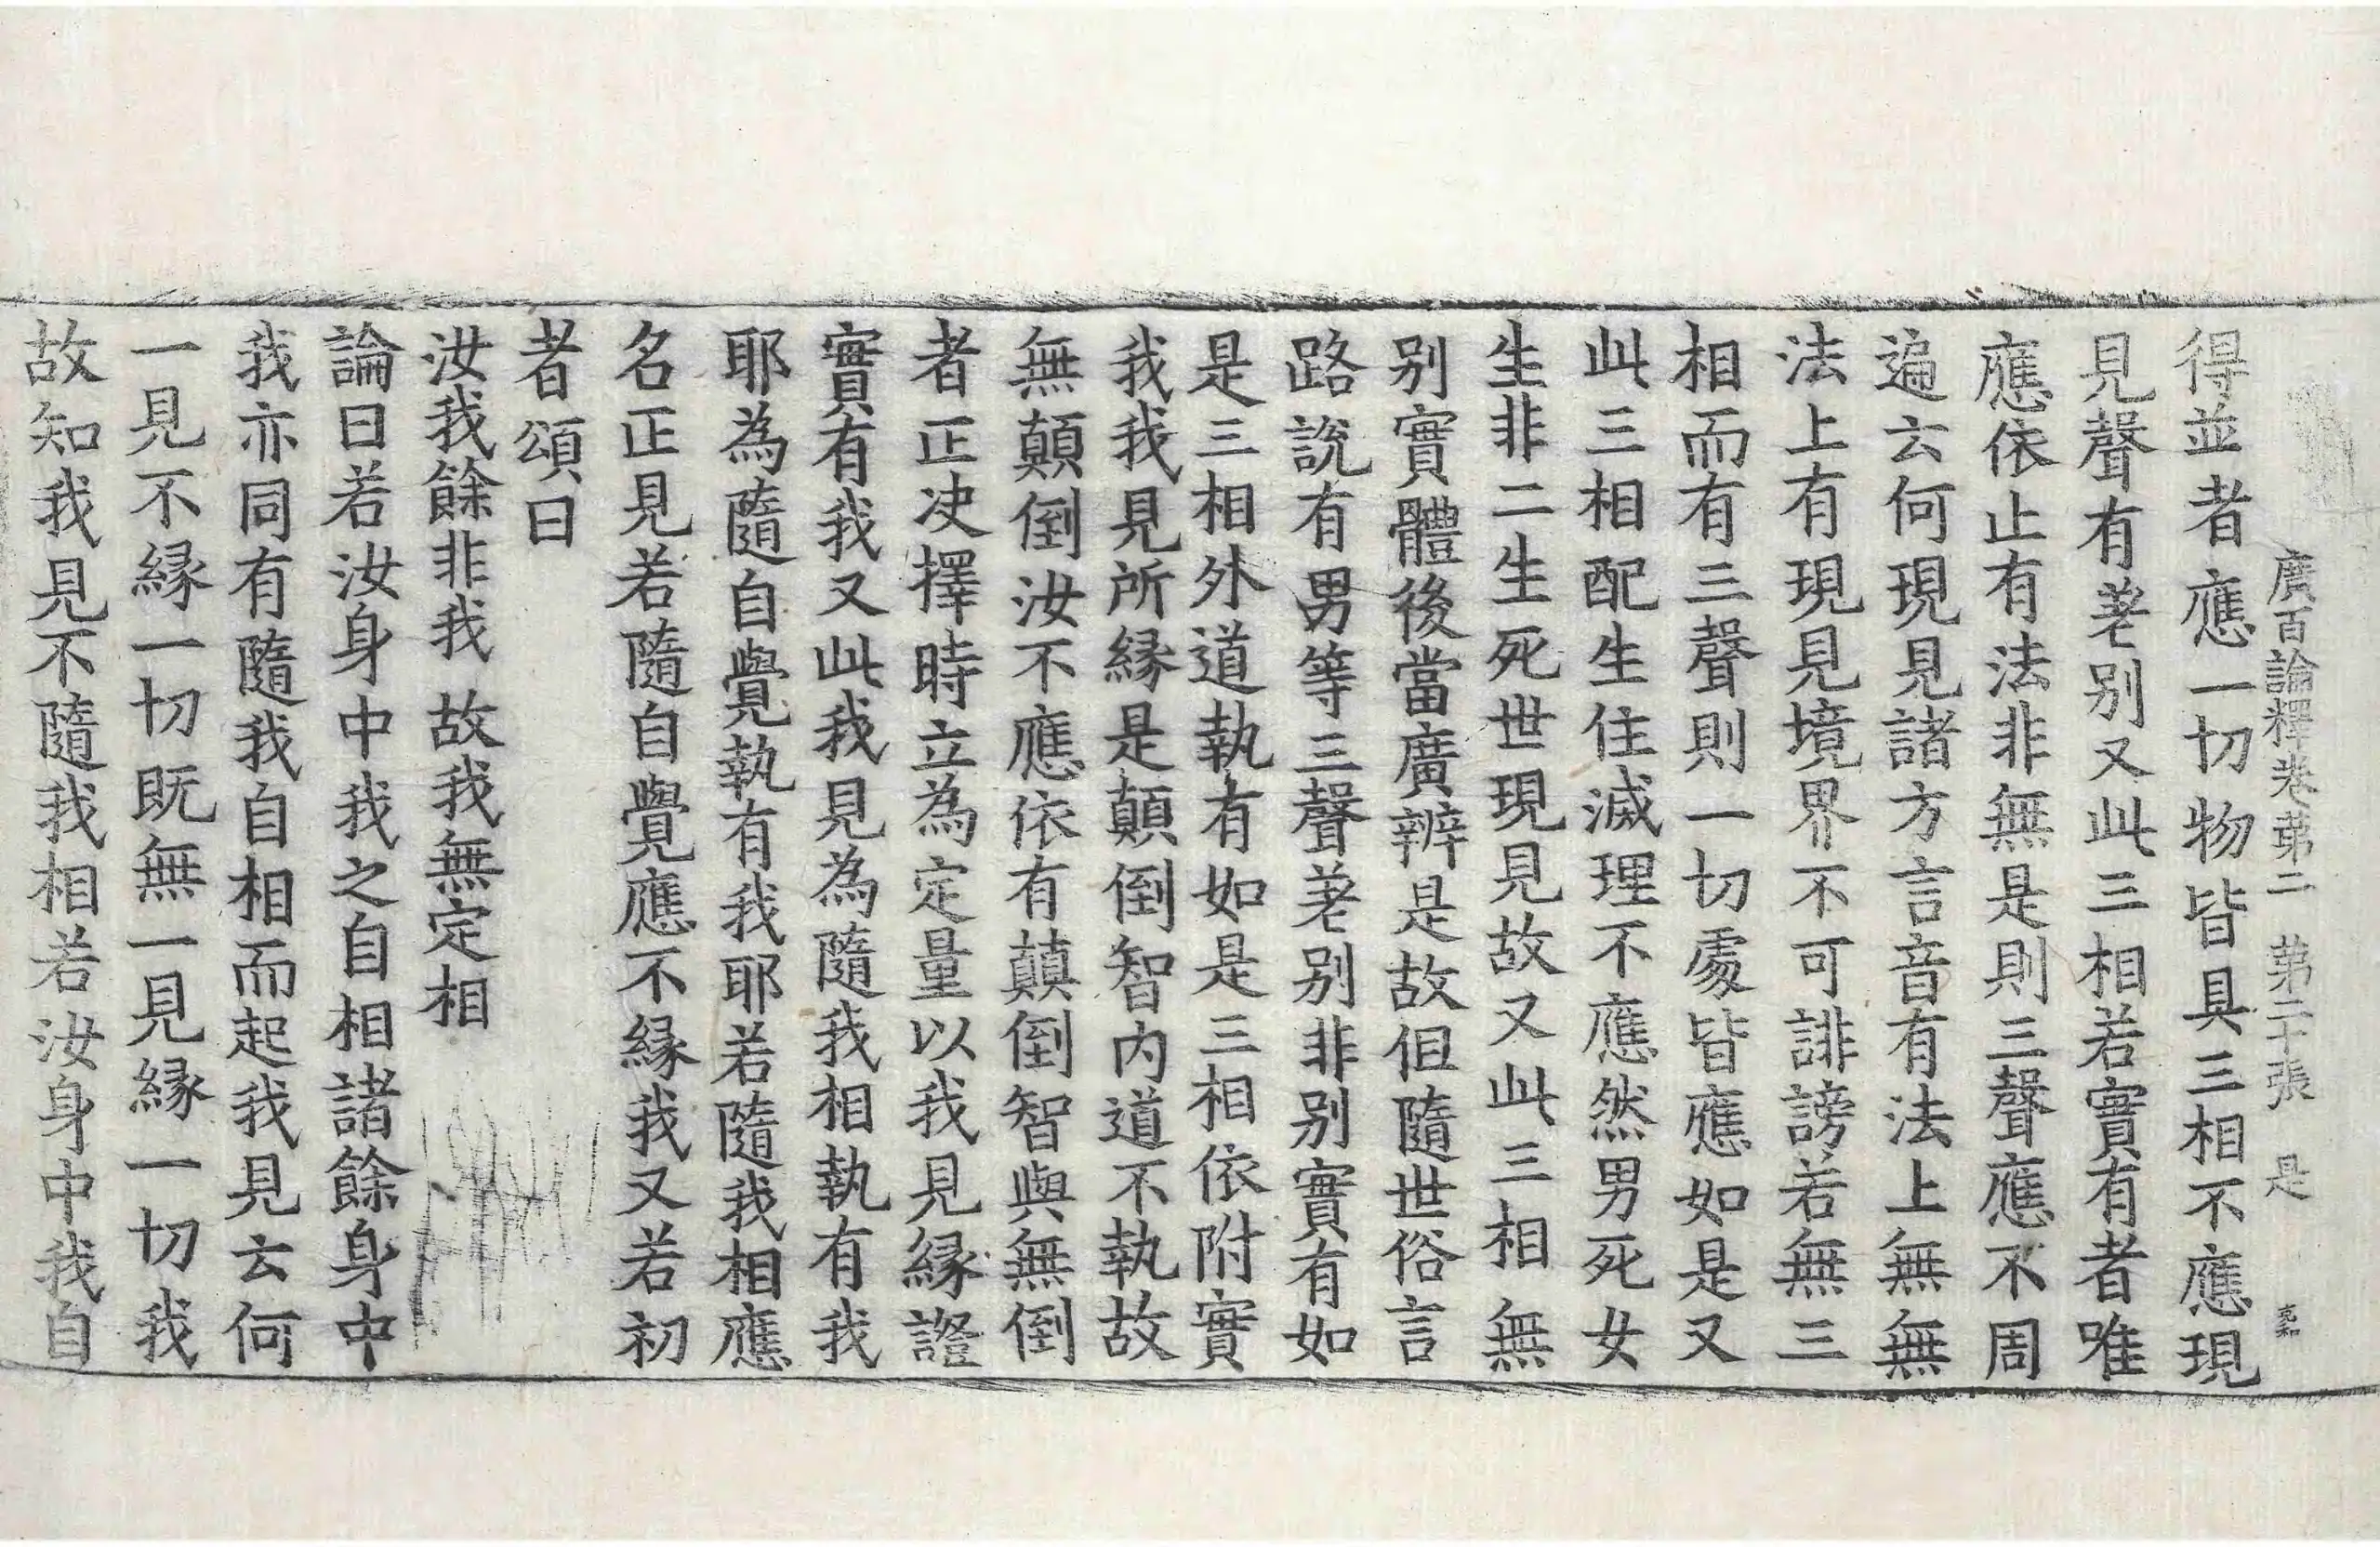 廣百論釋卷第二　第二十張　是
得並者應一切物皆具三相不應現
見聲有差別又此三相若實有者唯
應依止有法非無是則三聲應不周
遍云何現見諸方言音有法上無無
法上有現見境界不可誹謗若無三
相而有三聲則一切處皆應如是又
此三相配生住滅理不應然男死女
生非二生死世現見故又此三相無
別實體後當廣辨是故但隨世俗言
路說有男等三聲差別非別實有如
是三相外道執有如是三相依附實
我我見所緣是顛倒智內道不執故
無顛倒汝不應依有顛倒智與無倒
者正决擇時立為定量以我見緣證
實有我又此我見為隨我相執有我
耶為隨自覺執有我耶若隨我相應
名正見若隨自覺應不緣我又若初
者頌曰
汝我餘非我　故我無定相
論曰若汝身中我之自相諸餘身中
我亦同有隨我自相而起我見云何
一見不緣一切既無一見緣一切我
故知我見不隨我相若汝身中我自